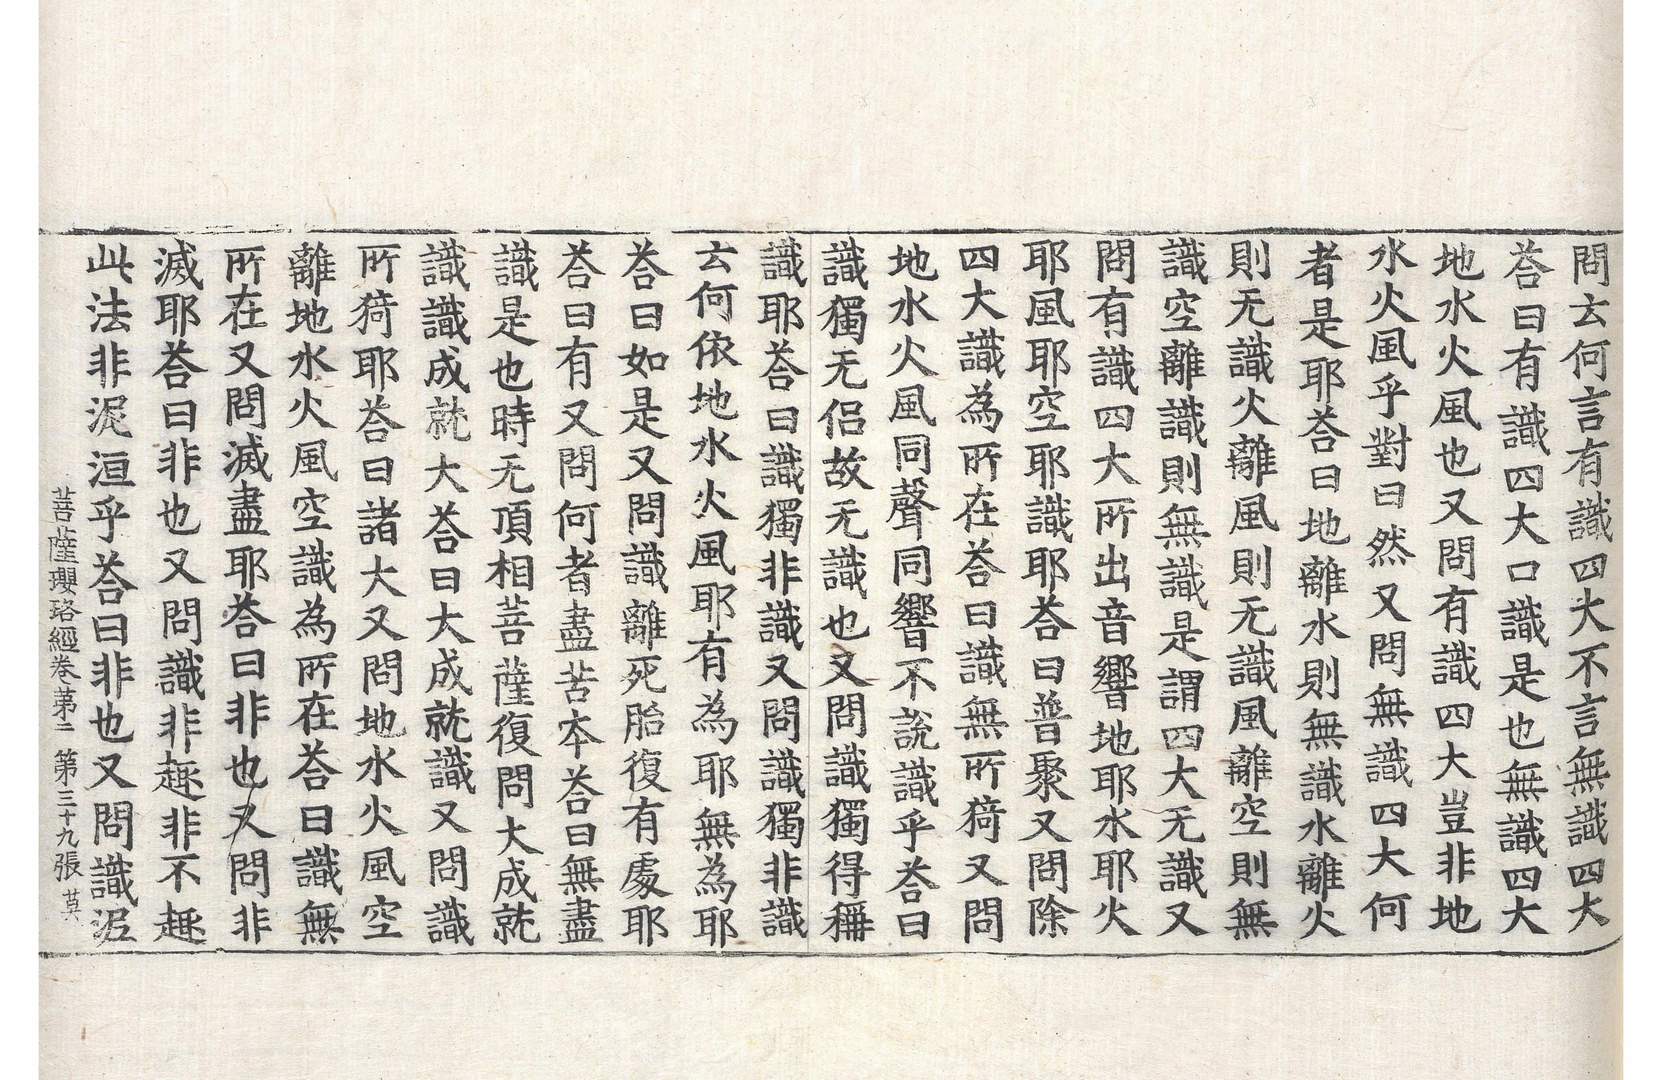 問云何言有識四大不言無識四大
荅曰有識四大口識是也無識四大
地水火風也又問有識四大豈非地
水火風乎對曰然又問無識四大何
者是耶荅曰地離水則無識水離火
則无識火離風則无識風離空則無
識空離識則無識是謂四大无識又
問有識四大所出音響地耶水耶火
耶風耶空耶識耶荅曰普聚又問除
四大識為所在荅曰識無所猗又問
地水火風同聲同響不說識乎荅曰
識獨无侣故无識也又問識獨得稱
識耶荅曰識獨非識又問識獨非識
云何依地水火風耶有為耶無為耶
荅曰如是又問識離死胎復有處耶
荅曰有又問何者盡苦本荅曰無盡
識是也時无頂相菩薩復問大成就
識識成就大荅曰大成就識又問識
所猗耶荅曰諸大又問地水火風空
離地水火風空識為所在荅曰識無
所在又問滅盡耶荅曰非也又問非
滅耶荅曰非也又問識非趣非不趣
此法非泥洹乎荅曰非也又問識泥
菩薩瓔珞經卷第二 第三十九張 莫